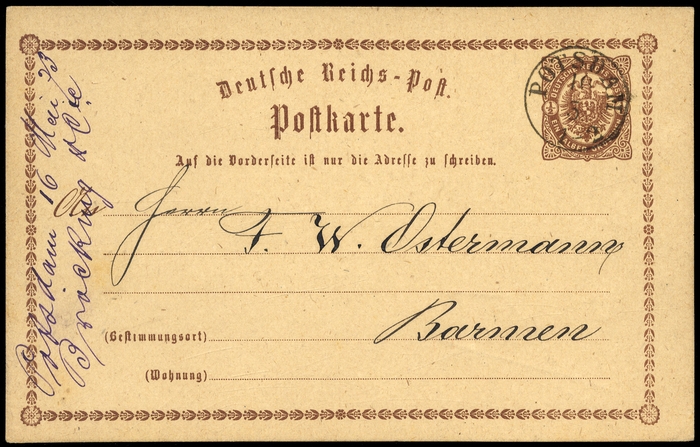 Deutsche Reichs-Post.
Postkarte.
Auf die Vorderseite ist nur die Adresse zu schreiben.
An Herrn
F. W. Ostermann
(Bestimmungsort) Barmen
(Wohnung)
POTSDAM
16
5
Potsdam 16 Mai 73
Brocking &